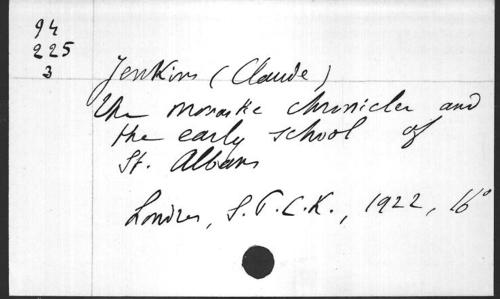 94
225
3
Jenkins (Claude)
The monastic chronicler and
the early school of
St. Albans
Londres, S.P.C.K., 1922, 16°